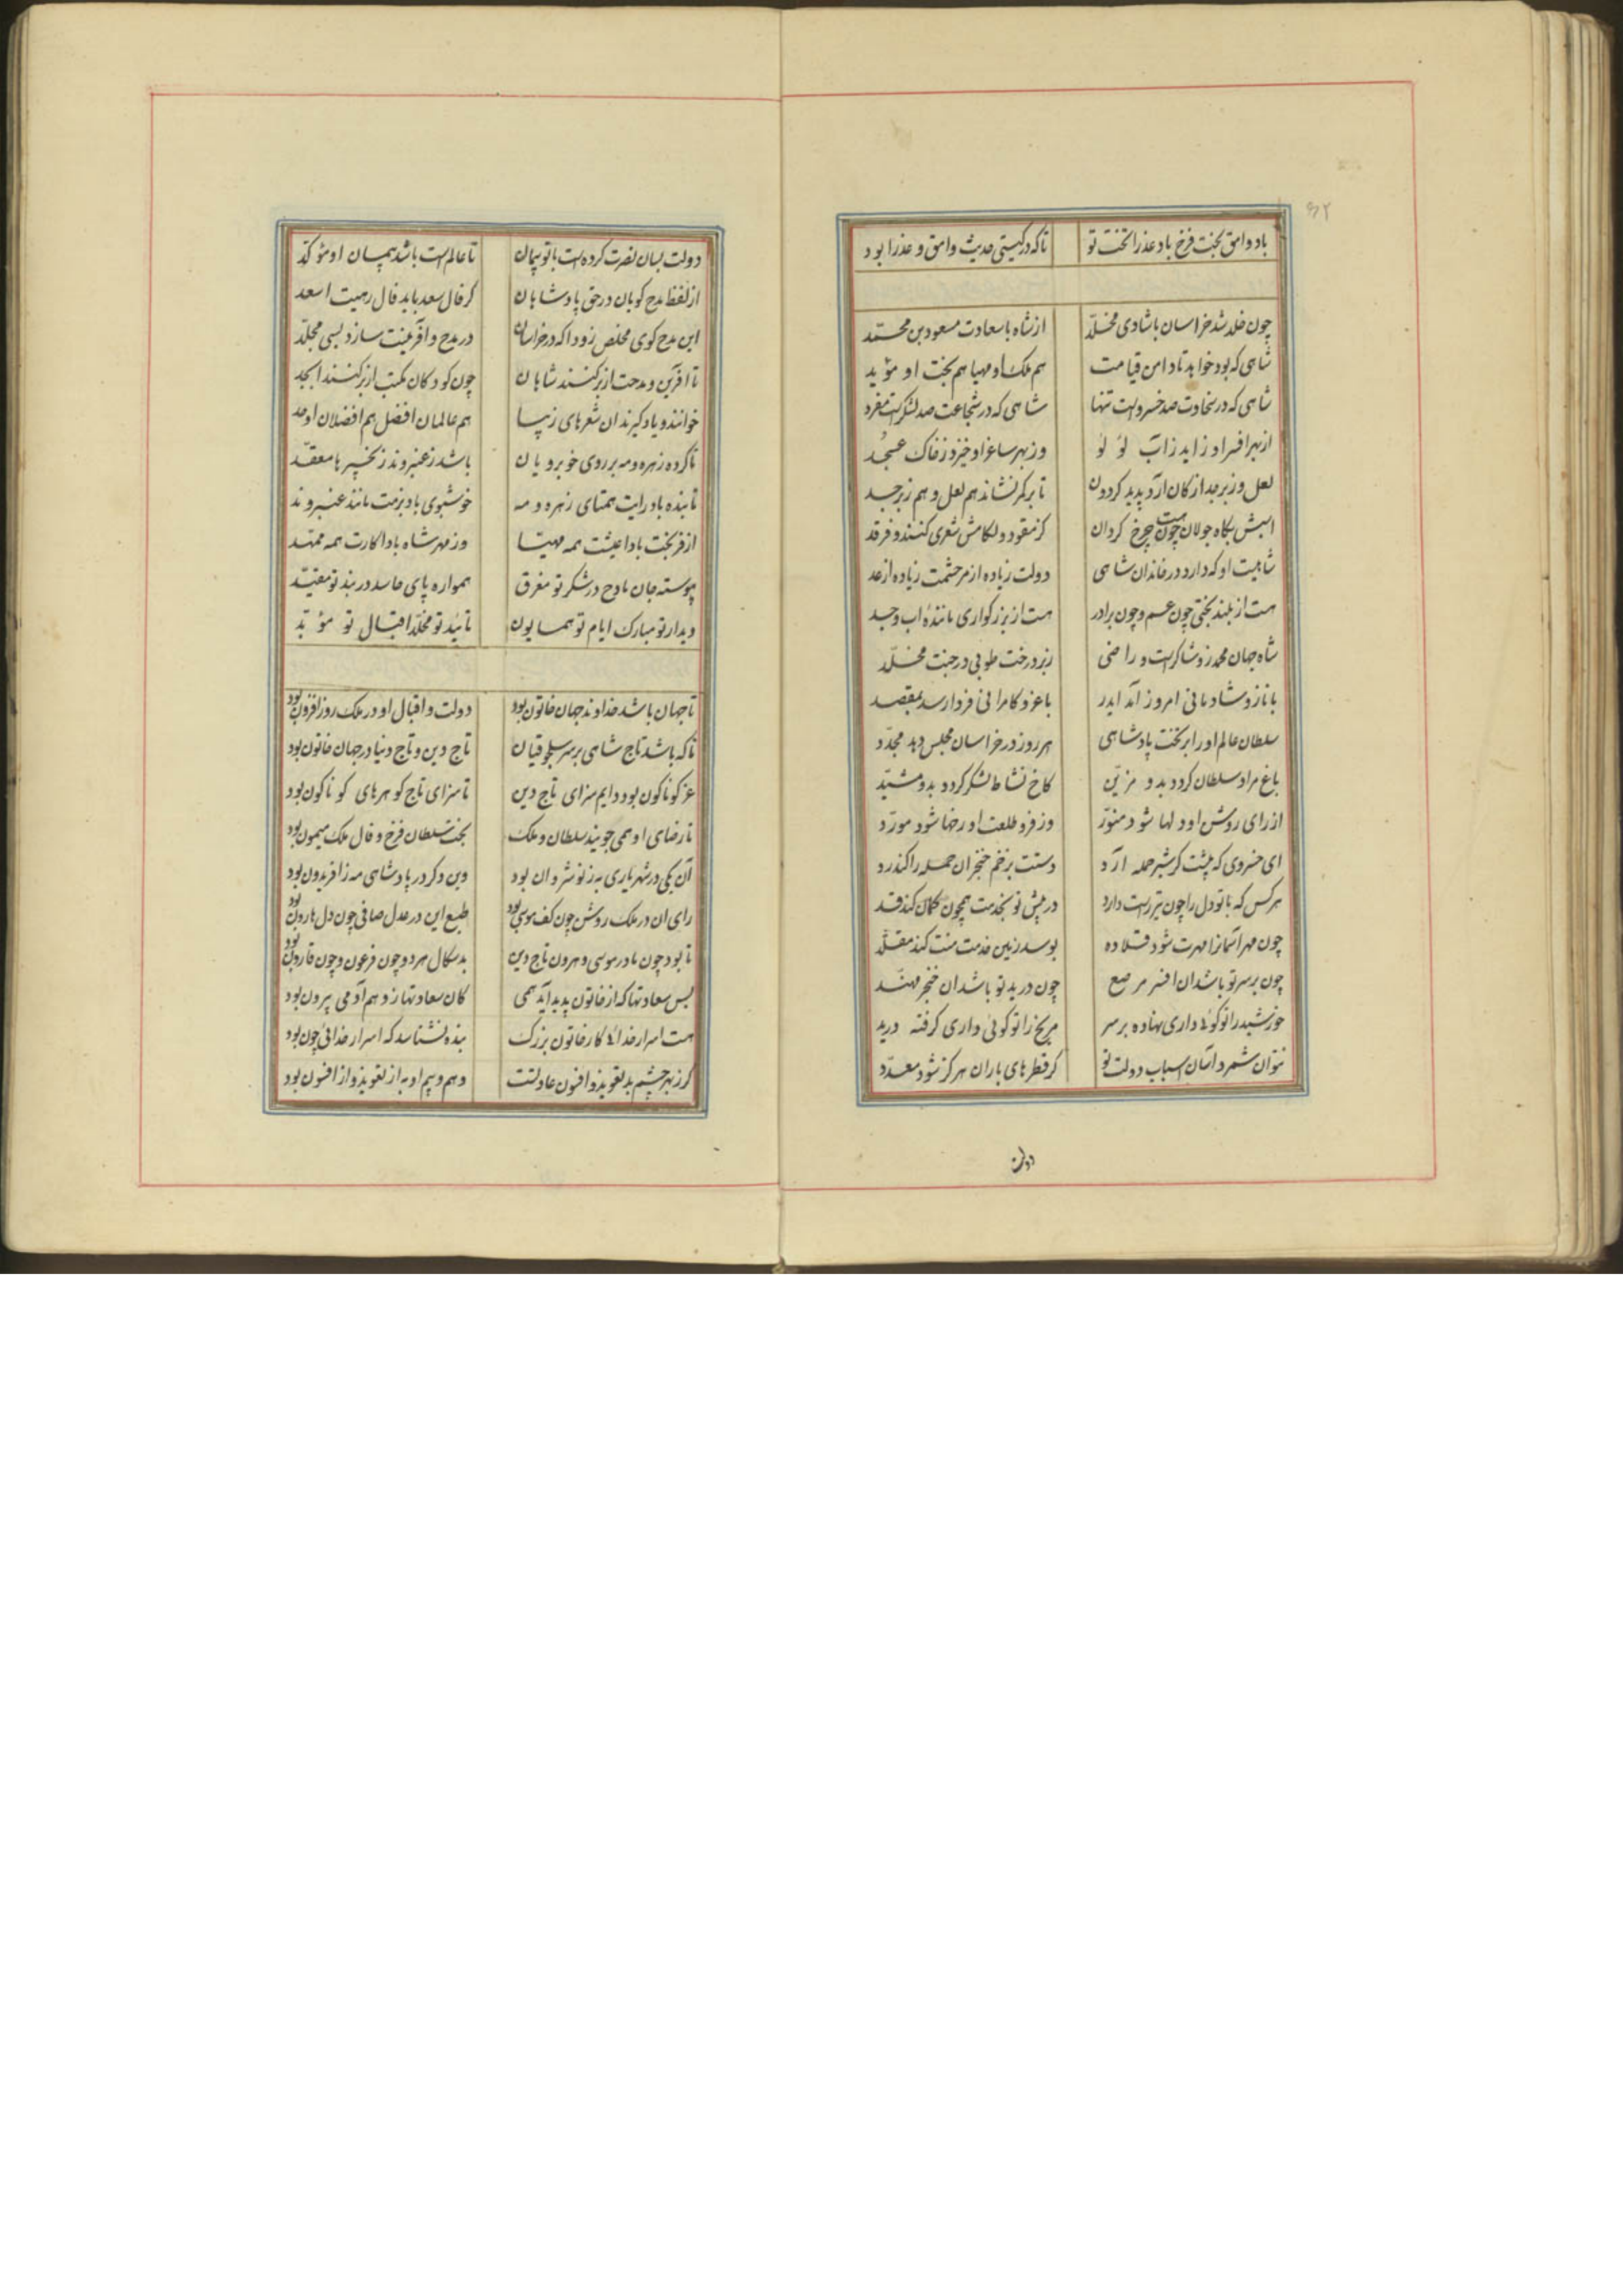 ۶۲
باد وامق بخت فرخ باد عذرا تخت تو تا که در گیتی حدیث وامق و عذرا بود
چون خلد شد خراسان با شادی مخلّد از شاه با سعادت مسعود بن محمّد
شاهی که بود خواهد تا دامن قیامت هم ملک او مهیا هم بخت او مؤید
شاهی که در سخاوت صد خسروست تنها شاهی که در شجاعت صد لشکرست مفرد
از بهر افسر او زاید ز آب لؤلؤ وز بهر ساغر او خیزد ز خاک عسجد
لعل و زبرجد از کان آرد پدید کردون تا بر کمر نشاند هم لعل و هم زبرجد
اسبش بگاه جولان چون هست چرخ کردان کز مقود و لکامش شعری کنند و فرقد
شاهیست او که دارد در خاندان شاهی دولت زیاده از مر حشمت زیاده از عد
هست از بلند بختی چون عم و چون برادر هست از بزرکواری مانندهٔ اب و جد
شاه جهان محمد زو شاکرست و راضی زیر درخت طوبی در جنت مخلّد
با ناز و شادمانی امروز آمد ایدر با عز و کامرانی فردا رسد بمقصد
سلطان عالم او را بر تخت پادشاهی هر روز در خراسان مجلس دهد مجدّد
باغ مراد سلطان کردد بدو مزیّن کاخ نشاط لشکر کردد بدو مشیّد
از رای روشن او دلها شود منوّر وز فرو طلعت او رخها شود مورّد
ای خسروی که پیشت کر شیر حمله آرد دستت بزخم خنجر آن حمله را کند رد
هر کس که با تو دل را چون تیر راست دارد در پیش تو بخدمت همچون کمان کند قد
چون مهر آسمانرا مهرت شود قلاده بوسد زمین خدمت منت کند مقلّد
چون بر سر تو باشد ان افسر مرصع چون در ید تو باشد ان خنجر مهنّد
خورشید را تو کوئی داری نهاده بر سر مریخ را تو کوئی داری کرفته در ید
نتوان شمرد آسان اسباب دولت تو کر قطرهای باران هرکز شود معدّد
دولت
دولت بسان نصرت کرده است با تو پیمان تا عالم است باشد پیمان او مؤکّد
از لفظ مدح کویان در حق پادشاهان کر فال سعد باید فال رهیت اسعد
این مدح کوی مخلص زودا که در خراسان در مدح و آفرینت سازد بسی مجلّد
تا آفرین و مدحت از بر کنند شاهان چون کودکان بمکتب از بر کنند ابجد
خوانند و یاد کیرند ان شعرهای زیبا هم عالمان افضل هم افضلان اوحد
تا کرد زهره و مه بر روی خوبرویان باشد ز عنبر و ند زنجیرها معقّد
تابنده باد رایت همتای زهره و مه خوشبوی باد بزمت مانند عنبر و ند
از فر بخت بادا عیشت همه مهیّا وز مهر شاه بادا کارت همه ممهّد
پیوسته جان مادح در شکر تو مغرق همواره پای حاسد در بند تو مقیّد
دیدار تو مبارک ایام تو همایون تائید تو مخلّد اقبال تو مؤبّد
تا جهان باشد خداوند جهان خاتون بود دولت و اقبال او در ملک روز افزون بود
تا که باشد تاج شاهی بر سر سلجوقیان تاج دین و تاج دنیا در جهان خاتون بود
عز کوناکون بود دایم سزای تاج دین تا سزای تاج کوهرهای کوناکون بود
تا رضای او همی جویند سلطان و ملک بخت سلطان فرخ و فال ملک میمون بود
آن یکی در شهریاری به ز نوشروان بود وین دکر در پادشاهی مه ز افریدون بود
رای ان در ملک روشن چون کف موسی بود طبع این در عدل صافی چون دل هارون بود
تا بود چون مادر موسی و هرون تاج دین بدسکال هر دو چون فرعون و چون قارون بود
بس سعادتها که از خاتون پدید آید همی کان سعادتها ز وهم آدمی بیرون بود
هست اسرار خدائی کار خاتون بزرک بنده نشناسد که اسرار خدائی چون بود
کر ز بهر چشم بد تعویذ و افسون عادتست وهم و بیم او به از تعویذ و از افسون بود